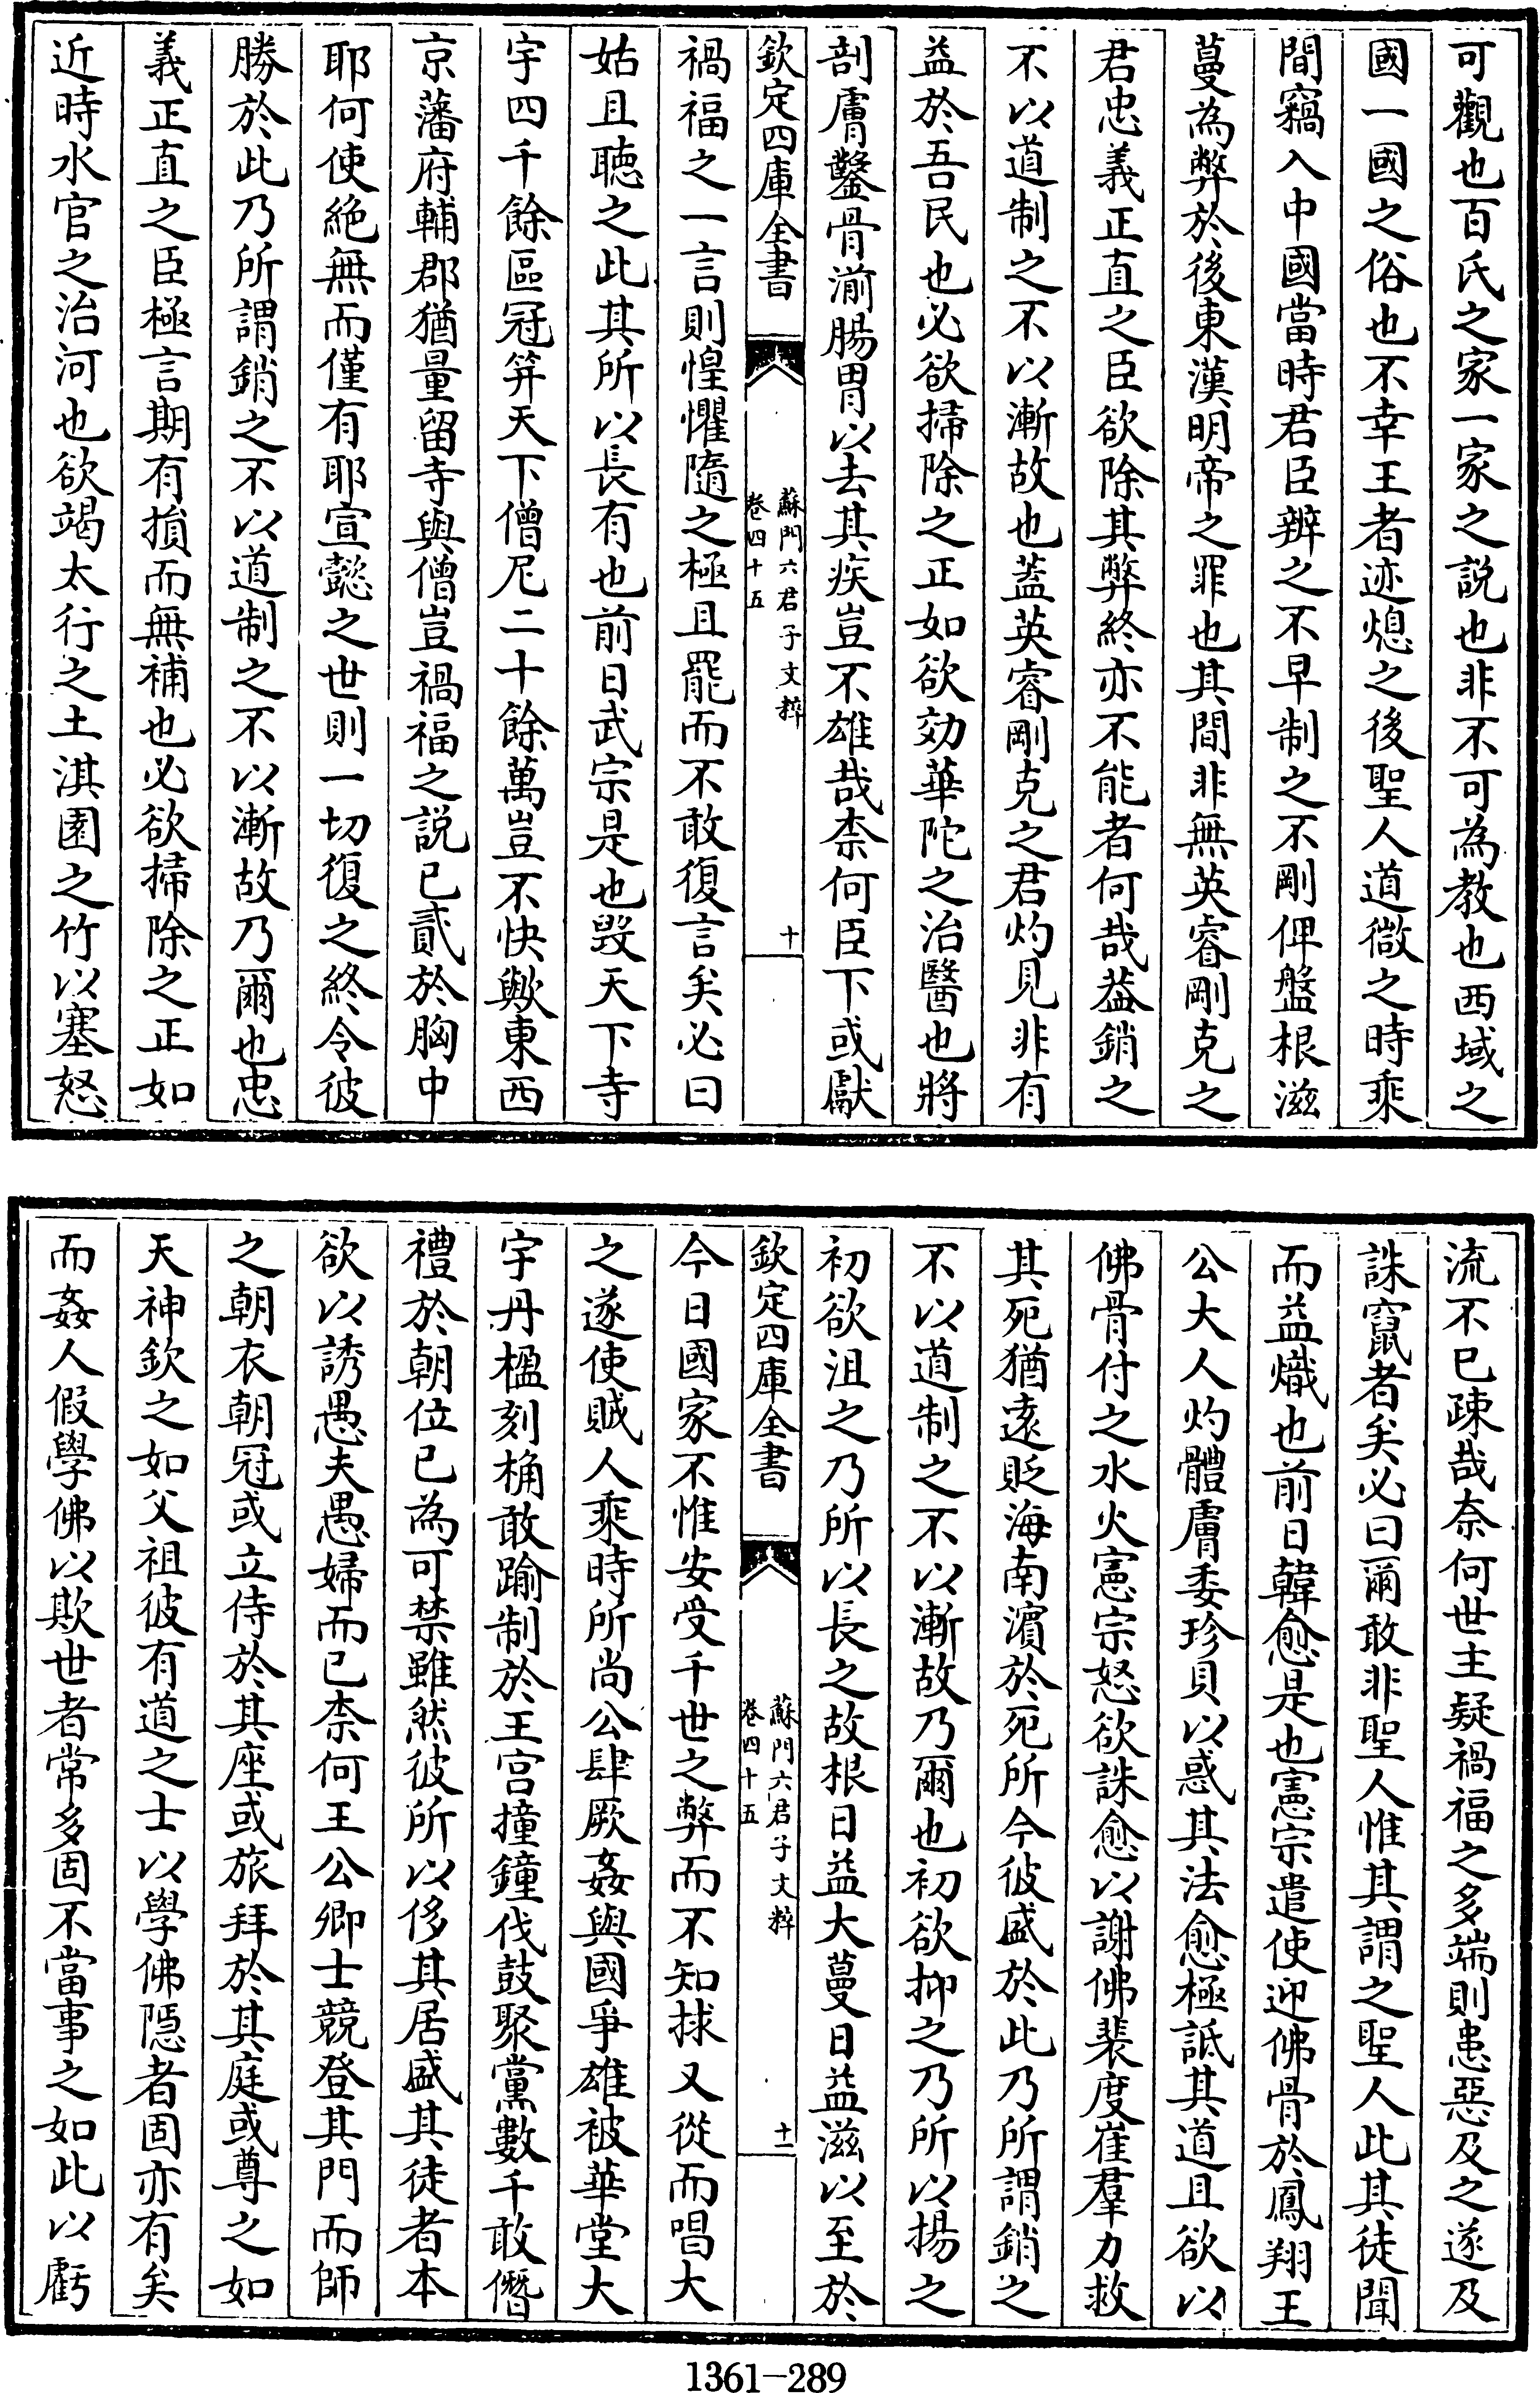 可觀也百氏之家一家之説也非不可為教也西域之
國一國之俗也不幸王者迹熄之後聖人道微之時乘
間竊入中國當時君臣辨之不早制之不剛俾盤根滋
蔓為弊於後東漢明帝之罪也其間非無英睿剛克之
君忠義正直之臣欲除其弊終亦不能者何哉葢銷之
不以道制之不以漸故也葢英睿剛克之君灼見非有
益於吾民也必欲掃除之正如欲効華陀之治醫也將
剖膚鑿骨湔腸胃以去其疾豈不雄哉柰何臣下或獻
欽定四庫全書
蘇門六君子文粹
卷四十五
十
禍福之一言則惶懼隨之極且罷而不敢復言矣必曰
姑且聴之此其所以長有也前日武宗是也毁天下寺
宇四千餘區冠笄天下僧尼二十餘萬豈不快歟東西
京藩府輔郡猶量留寺與僧豈禍福之説已貳於胸中
耶何使絶無而僅有耶宣懿之世則一切復之終令彼
勝於此乃所謂銷之不以道制之不以漸故乃爾也忠
義正直之臣極言期有損而無補也必欲掃除之正如
近時水官之治河也欲竭太行之土淇園之竹以塞怒
流不已疎哉奈何世主疑禍福之多端則患惡及之遂及
誅竄者矣必曰爾敢非聖人惟其謂之聖人此其徒聞
而益熾也前日韓愈是也憲宗遣使迎佛骨於鳳翔王
公大人灼體膚委珍貝以惑其法愈極詆其道且欲以
佛骨付之水火憲宗怒欲誅愈以謝佛裴度崔羣力救
其死猶逺貶海南濵於死所今彼盛於此乃所謂銷之
不以道制之不以漸故乃爾也初欲抑之乃所以揚之
初欲沮之乃所以長之故根日益大蔓日益滋以至於
欽定四庫全書
蘇門六君子文粹
卷四十五
十一
今日國家不惟安受千世之弊而不知捄又從而唱大
之遂使賊人乘時所尚公肆厥姦與國爭雄被華堂大
宇丹楹刻桷敢踰制於王宫撞鐘伐鼓聚黨數千敢僭
禮於朝位已為可禁雖然彼所以侈其居盛其徒者本
欲以誘愚夫愚婦而已柰何王公卿士競登其門而師
之朝衣朝冠或立侍於其座或旅拜於其庭或尊之如
天神欽之如父祖彼有道之士以學佛隠者固亦有矣
而姦人假學佛以欺世者常多固不當事之如此以虧
1361-289